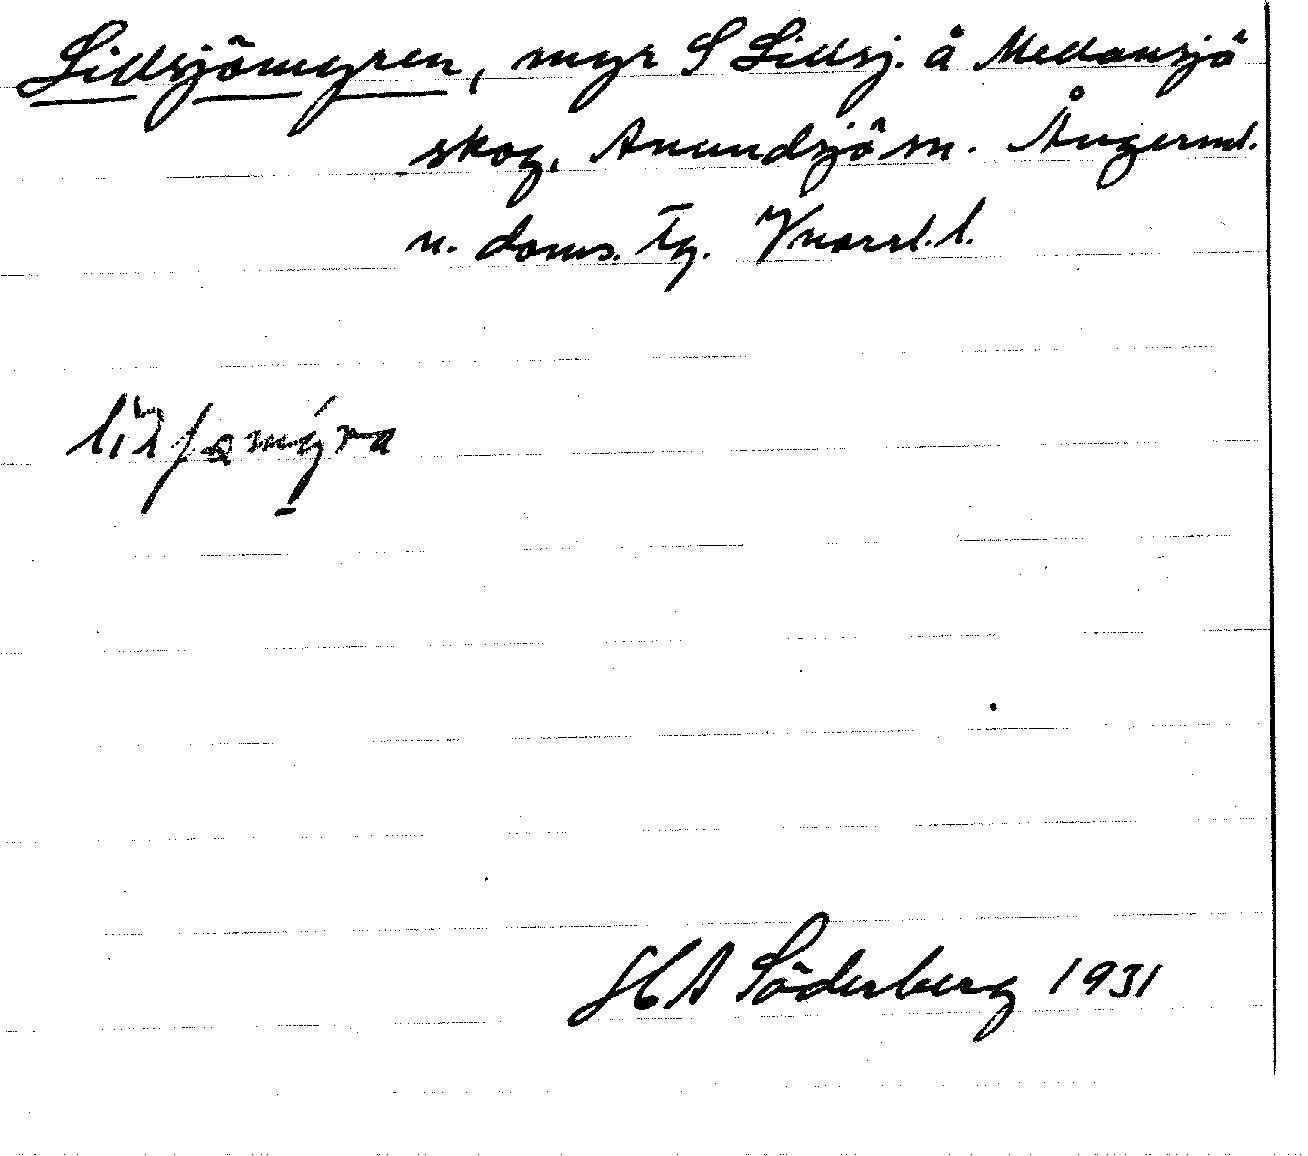 Lillsjömyren, myr S Lillsj. å Mellansjö
skog, Anundsjö sn. Ångerml.
n. doms. Tg. Västernorrl. l.
H A Söderberg 1931